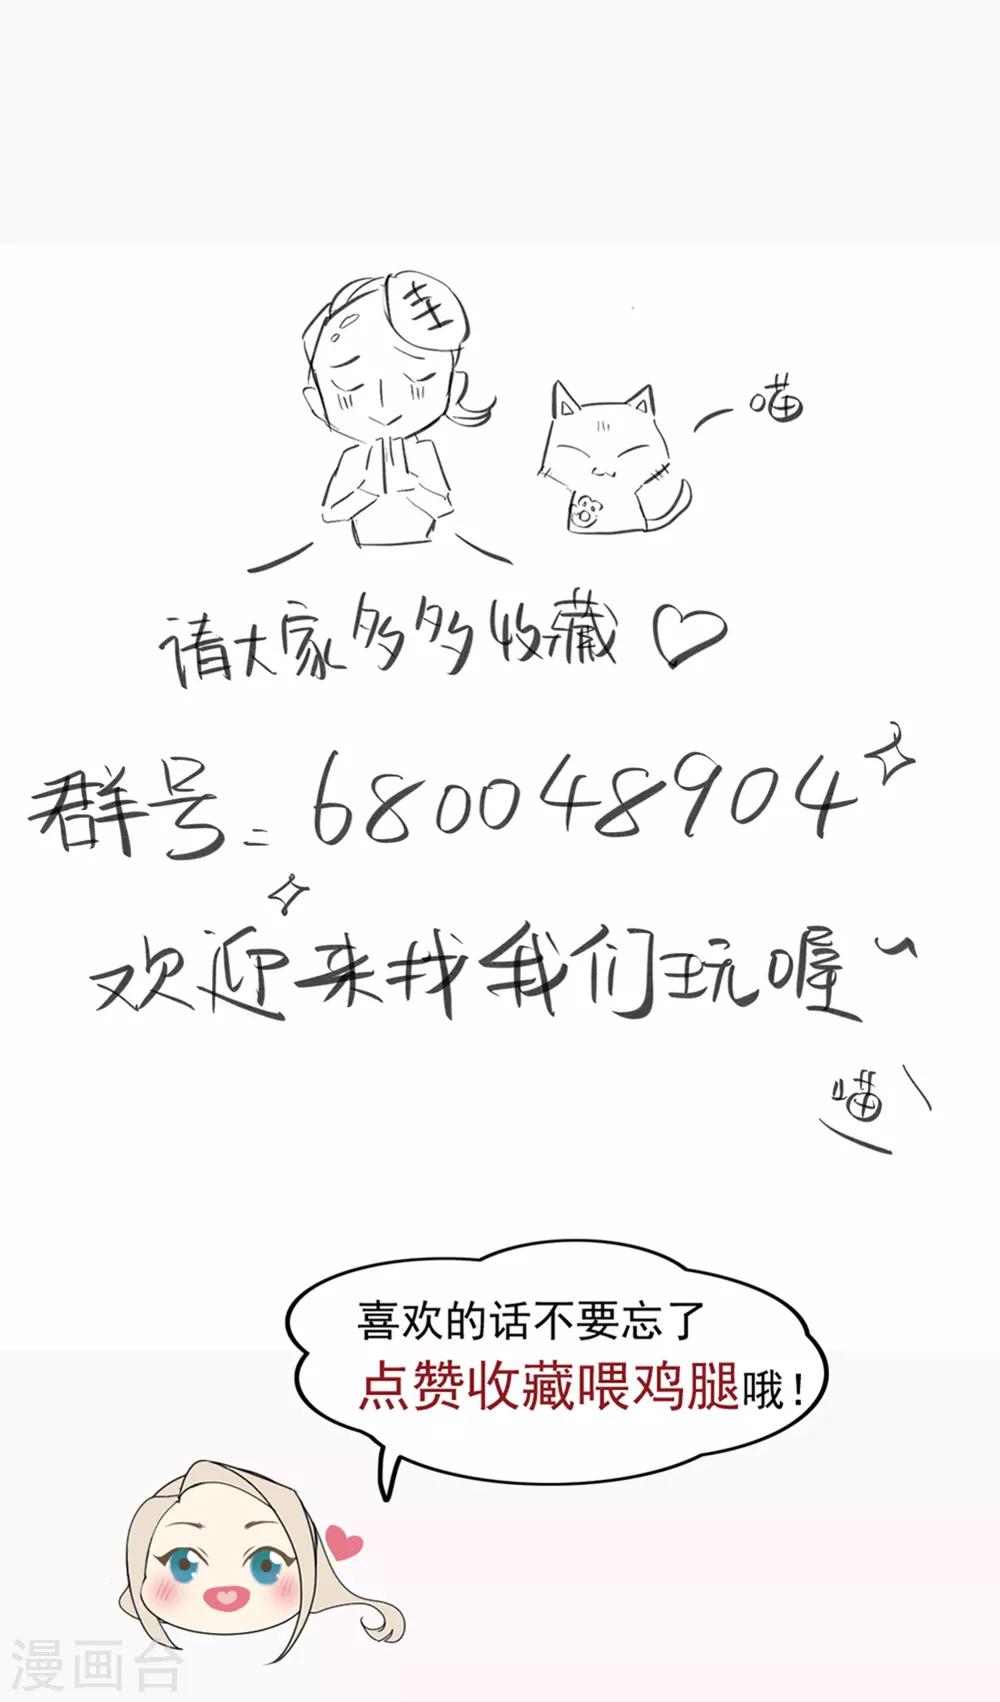 圭
喵
请大家多多收藏♡
群号：680048904
欢迎来找我们玩喔~
喵
喜欢的话不要忘了
点赞收藏喂鸡腿哦！
漫画台